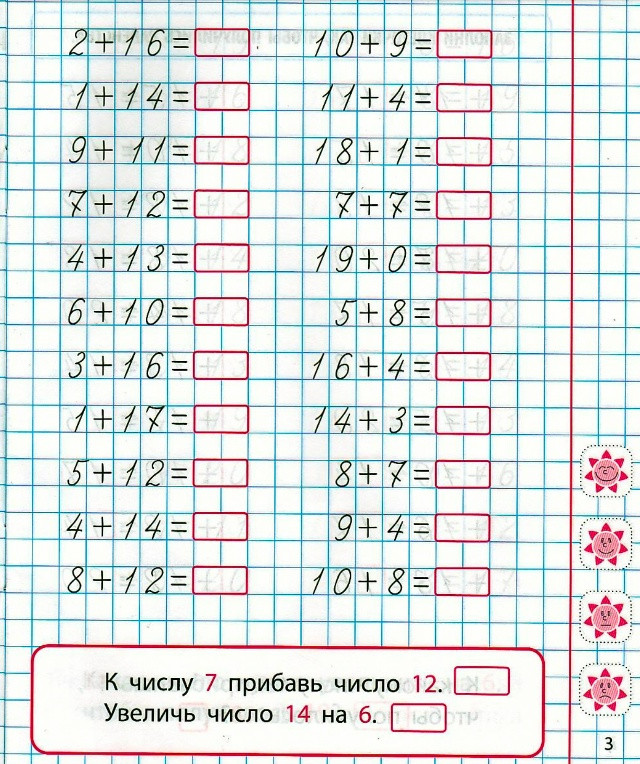 2+16=
1+14=
9+11=
7+12=
4+13=
6+10=
3+16=
1+17=
5+12=
4+14=
8+12=
10+9=
11+4=
18+1=
7+7=
19+0=
5+8=
16+4=
14+3=
8+7=
9+4=
10+8=
К числу 7 прибавь число 12.
Увеличь число 14 на 6.
3